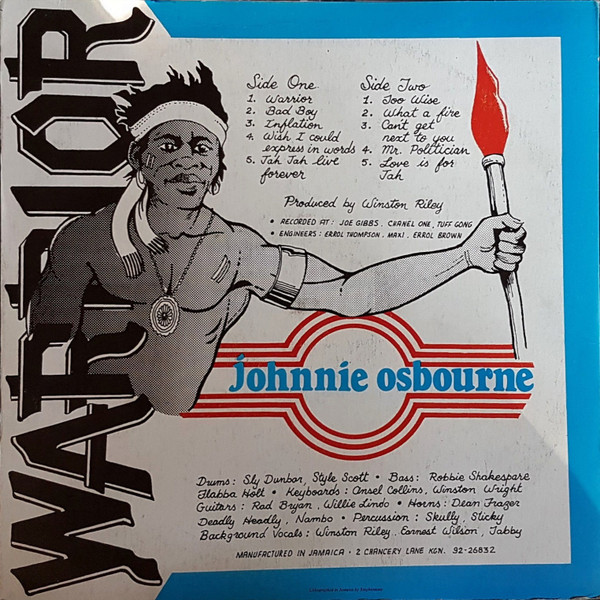 WARRIOR
Side One
1. Warrior
2. Bad Boy
3. Inflation
4. Wish I could
express in words
5. Jah Jah live
forever
Side Two
1. Too Wise
2. What a fire
3. Can't get
next to you
4. Mr. Politician
5. Love is for
Jah
Produced by Winston Riley
• RECORDED AT: JOE GIBBS, CHANEL ONE, TUFF GONG
• ENGINEERS: ERROL THOMPSON, MAXI, ERROL BROWN
johnnie osbourne
Drums: Sly Dunbar, Style Scott • Bass: Robbie Shakespare
Flabba Holt • Keyboards: Ansel Collins, Winston Wright
Guitars: Rad Bryan, Willie Lindo • Horns: Dean Frazer
Deadly Headly, Nambo • Percussion: Skully, Sticky
Background Vocals: Winston Riley, Earnest Wilson, Tabby
MANUFACTURED IN JAMAICA • 2 CHANCERY LANE KGN. 92-26832